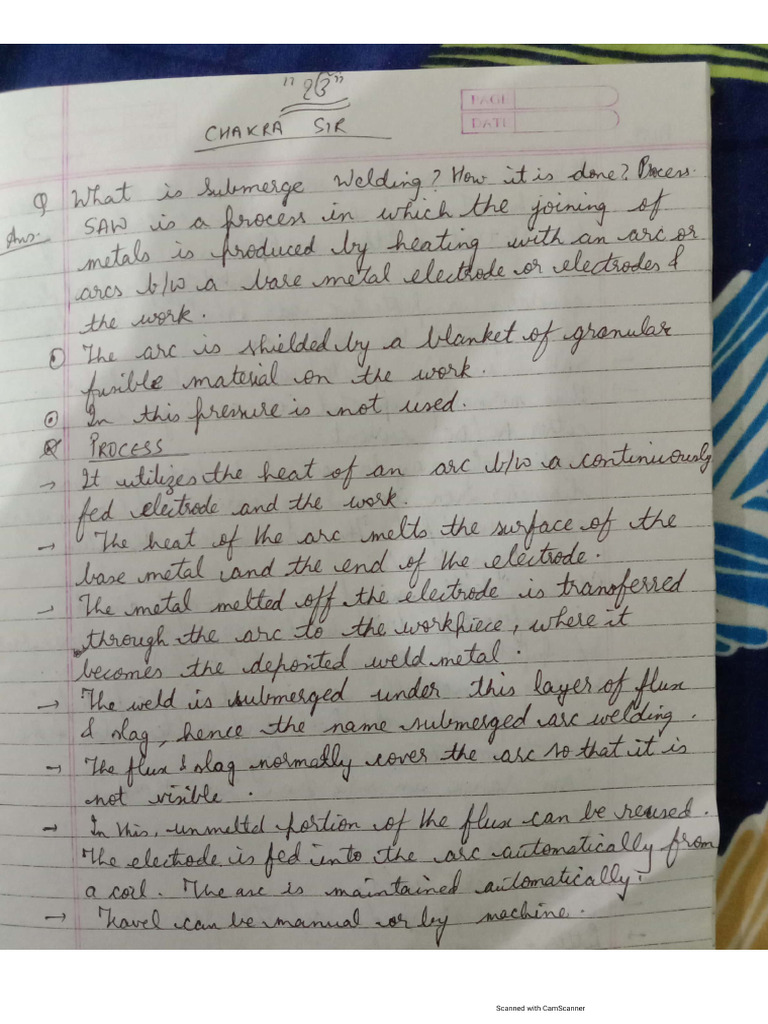 CHAKRA SIR
PAGE
DATE
Q What is submerge Welding? How it is done? Process.
Ans. SAW is a process in which the joining of
metals is produced by heating with an arc or
arcs b/w a bare metal electrode or electrodes &
the work.
⊙ The arc is shielded by a blanket of granular
fusible material on the work.
⊙ In this pressure is not used.
PROCESS
→ It utilizes the heat of an arc b/w a continuously
fed electrode and the work.
→ The heat of the arc melts the surface of the
base metal and the end of the electrode.
→ The metal melted off the electrode is transferred
through the arc to the workpiece, where it
becomes the deposited weld metal.
→ The weld is submerged under this layer of flux
& slag, hence the name submerged arc welding.
→ The flux & slag normally cover the arc so that it is
not visible.
→ In this, unmeltd portion of the flux can be reused.
The electrode is fed into the arc automatically from
a coil. The arc is maintained automatically.
→ Travel can be manual or by machine.
Scanned with CamScanner